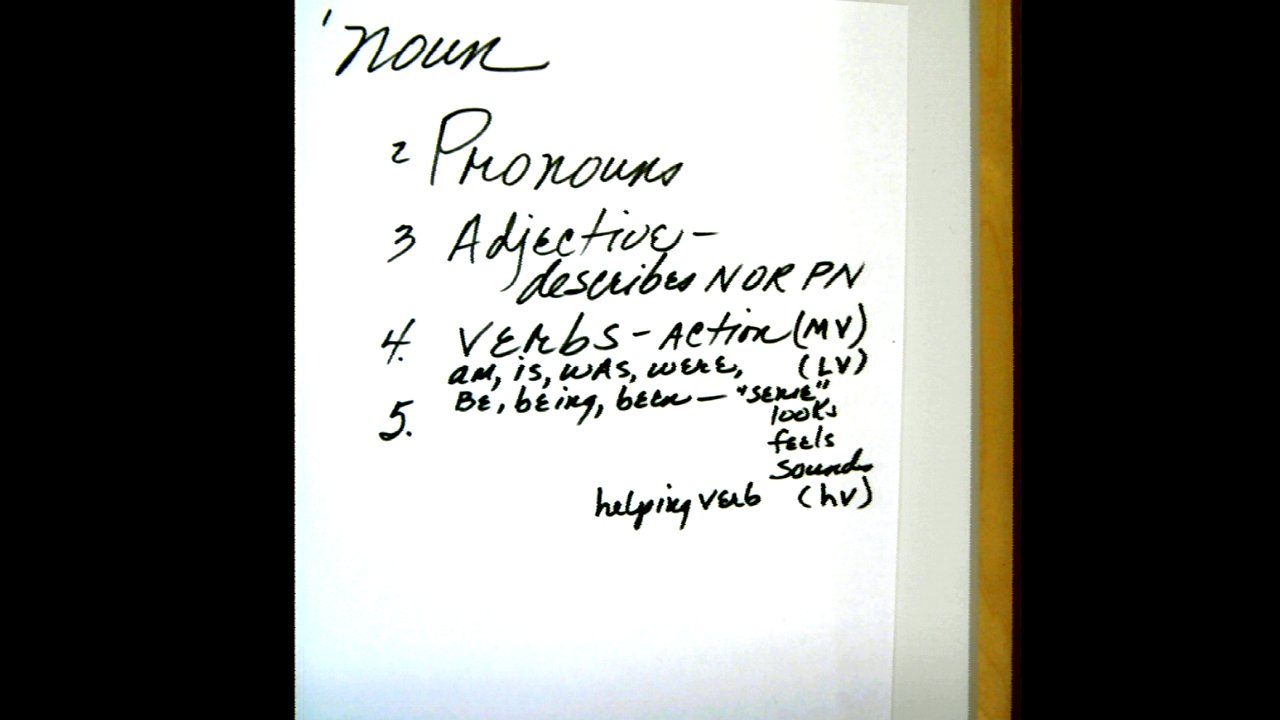 1 noun
2 Pronouns
3 Adjective -
describes N OR PN
4. Verbs - Action (MV)
am, is, was, were, (LV)
5. Be, being, been — "sense"
looks
feels
sounds
helping verb (hv)